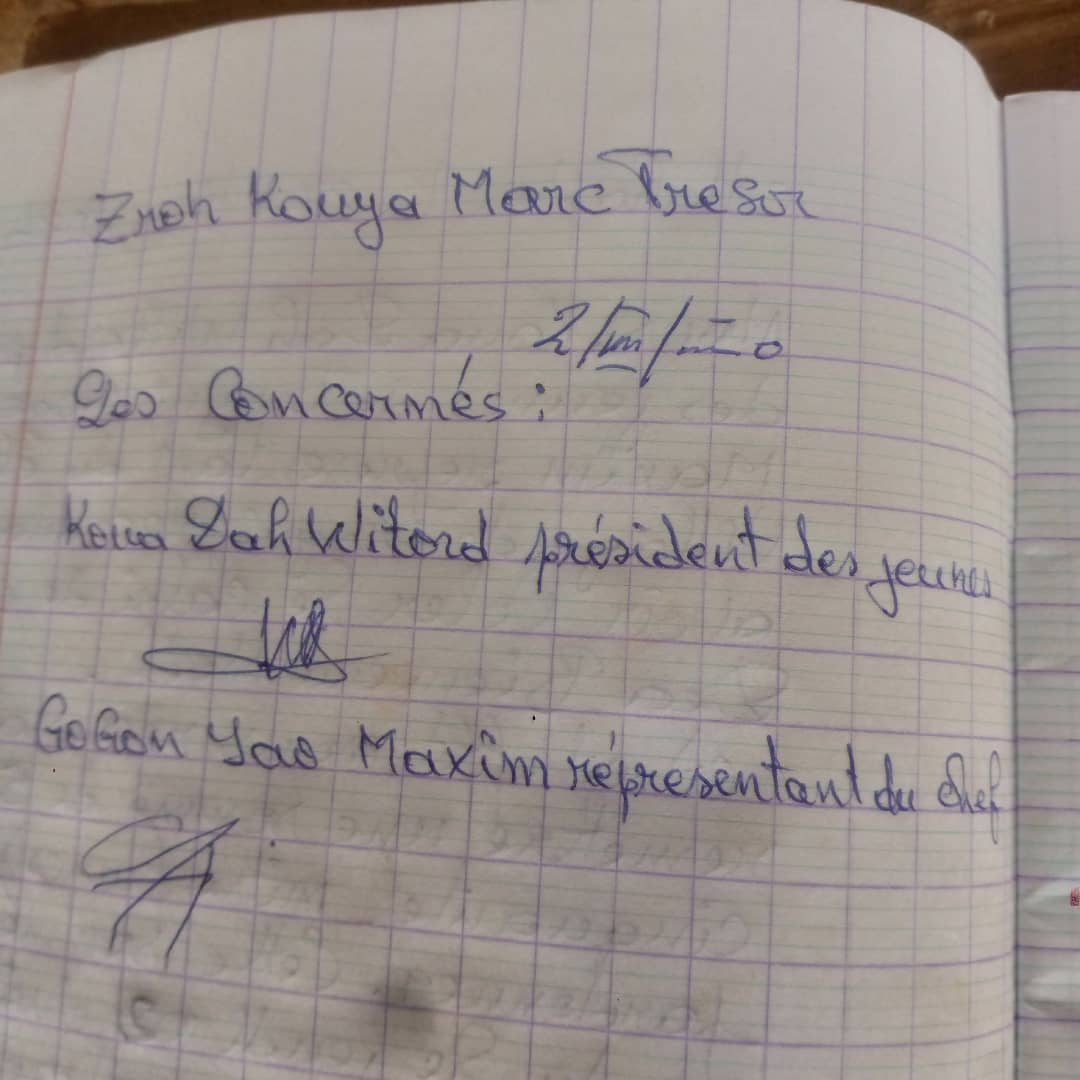 Zroh Kouya Marc Tresor
Les Concernés :
Koua Zah Witord président des jeunes
GoGon Yao Maxim répresentant du chef